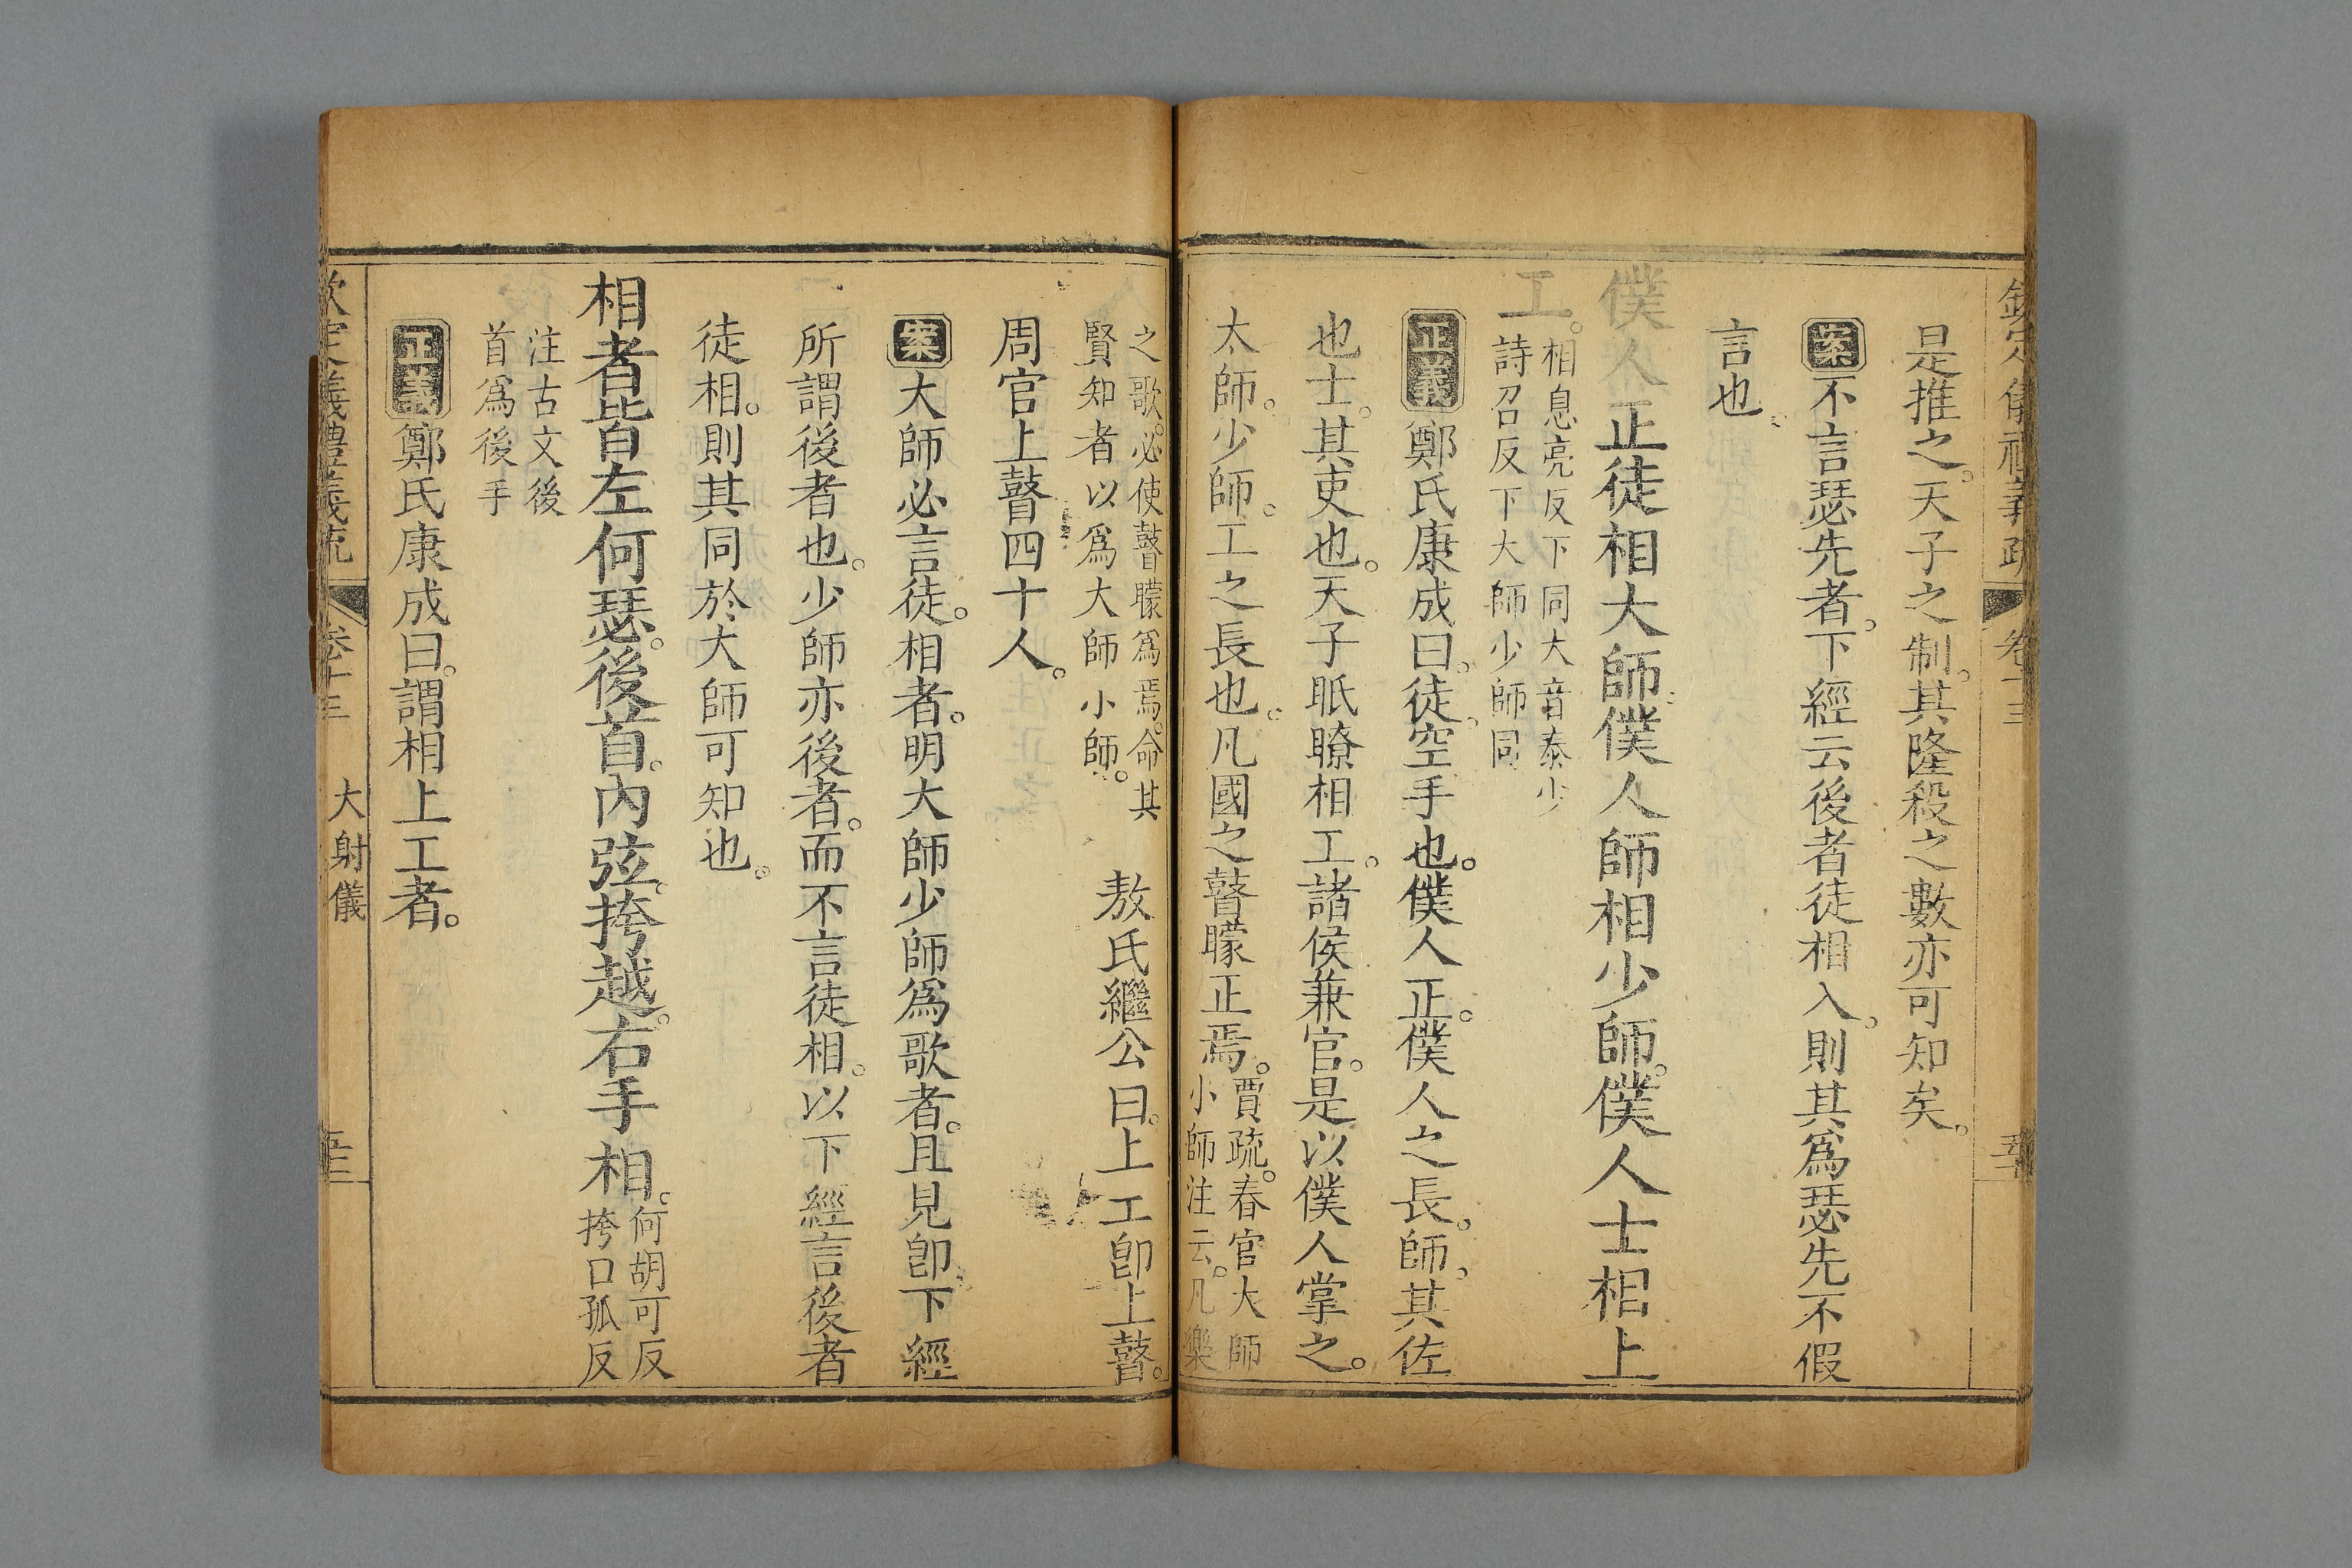 是推之。天子之制。其隆殺之數亦可知矣。
案不言瑟先者。下經云後者徒相入。則其爲瑟先不假
言也。
僕人正徒相大師。僕人師相少師。僕人士相上
工。相息亮反下同大音泰少
詩召反下大師少師同
正義鄭氏康成曰。徒。空手也。僕人正。僕人之長。師。其佐
也士。其吏也。天子眡瞭相工。諸侯兼官。是以僕人掌之。
太師。少師。工之長也。凡國之瞽矇正焉。賈疏。春官大師
小師注云。凡樂
之歌。必使瞽矇爲焉。命其
賢知者以爲大師小師。敖氏繼公曰。上工卽上瞽。
周官上瞽四十人。
案大師必言徒。相者。明大師少師爲歌者。且見卽下經
所謂後者也。少師亦後者。而不言徒相。以下經言後者
徒相。則其同於大師可知也。
相者皆左何瑟。後首。內弦。挎越。右手相。何胡可反
挎口孤反
注古文後
首爲後手
正義鄭氏康成曰。謂相上工者。
大射儀